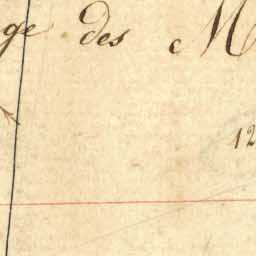 ge des M
12